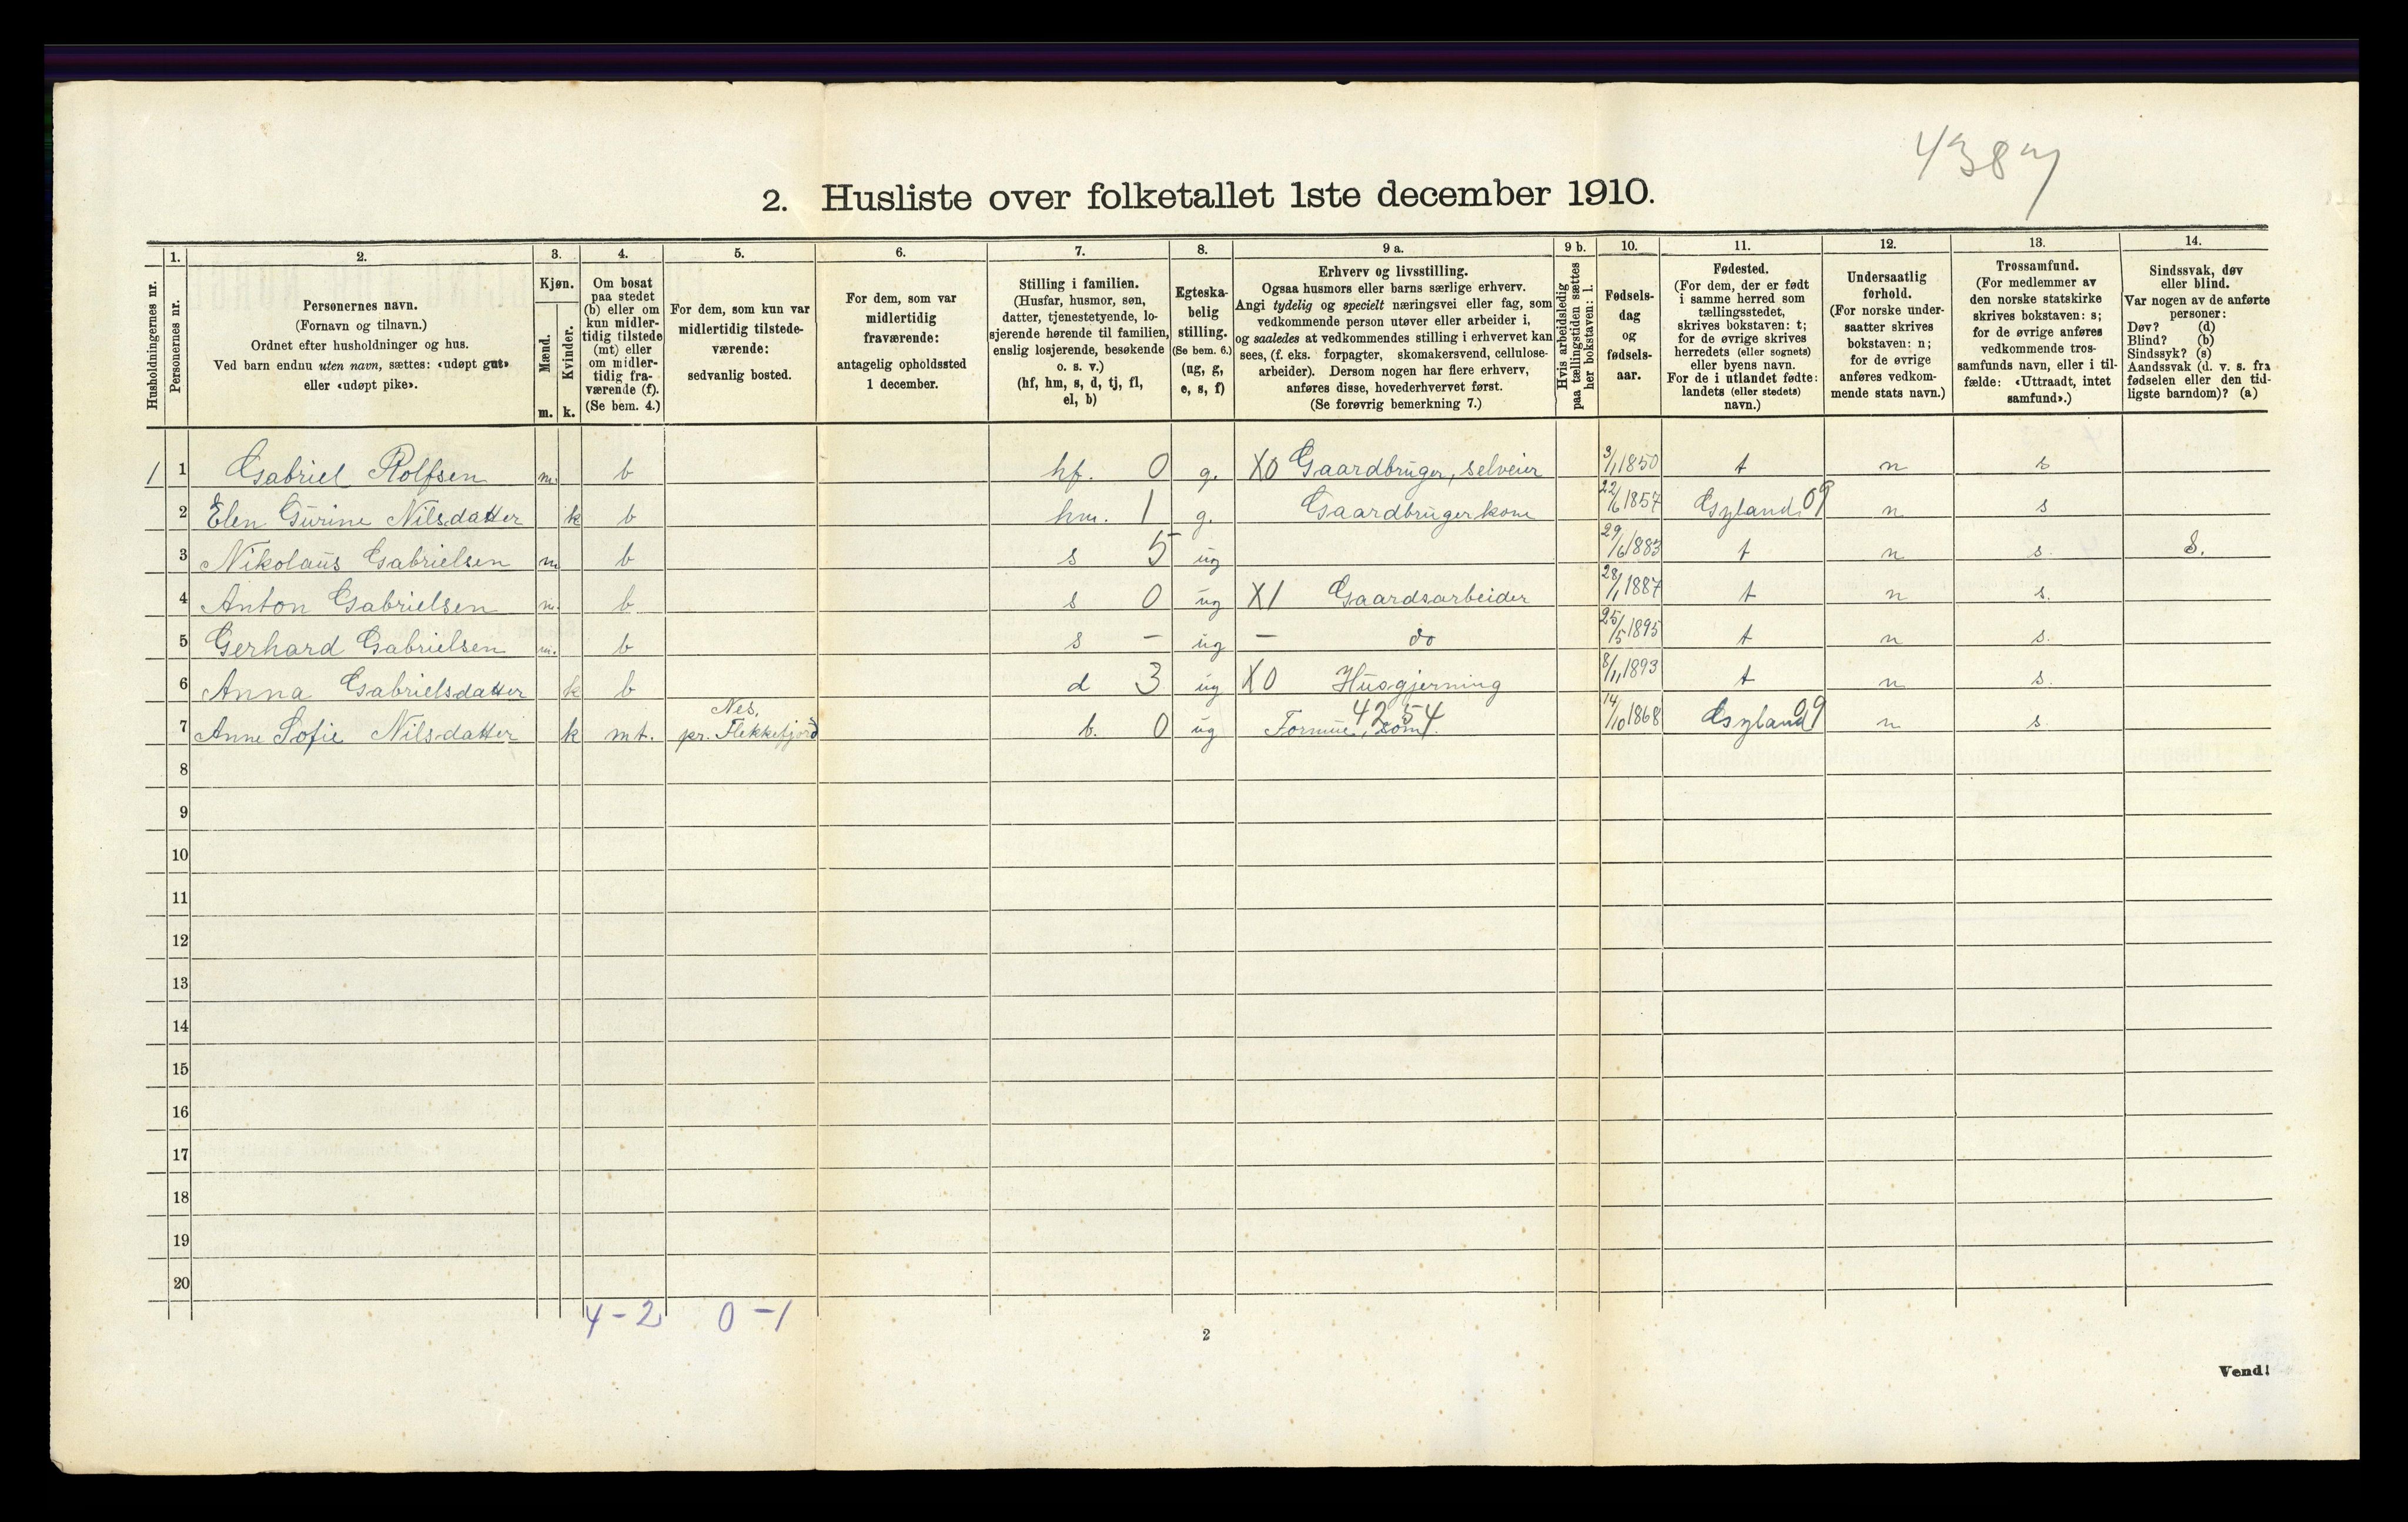 4387
2. Husliste over folketallet 1ste december 1910.
Husholdningernes nr.
1.
Personernes nr.
2.
Personernes navn.
(Fornavn og tilnavn.)
Ordnet efter husholdninger og hus.
Ved barn endnu uten navn, sættes: «udøpt gut»
eller «udøpt pike».
3.
Kjøn.
Mænd.
Kvinder.
m. k.
4.
Om bosat
paa stedet
(b) eller om
kun midler-
tidig tilstede
(mt) eller
om midler-
tidig fra-
værende (f).
(Se bem. 4.)
5.
For dem, som kun var
midlertidig tilstede-
værende:
sedvanlig bosted.
6.
For dem, som var
midlertidig
fraværende:
antagelig opholdssted
1 december.
7.
Stilling i familien.
(Husfar, husmor, søn,
datter, tjenestetyende, lo-
sjerende hørende til familien,
enslig losjerende, besøkende
o. s. v.)
(hf, hm, s, d, tj, fl,
el, b)
8.
Egteska-
belig
stilling.
(Se bem. 6.)
(ug, g,
e, s, f)
9 a.
Erhverv og livsstilling.
Ogsaa husmors eller barns særlige erhverv.
Angi tydelig og specielt næringsvei eller fag, som
vedkommende person utøver eller arbeider i,
og saaledes at vedkommendes stilling i erhvervet kan
sees, (f. eks. forpagter, skomakersvend, cellulose-
arbeider). Dersom nogen har flere erhverv,
anføres disse, hovederhvervet først.
(Se forøvrig bemerkning 7.)
9 b.
Hvis arbeidsledig
paa tællingstiden sættes
her bokstaven: l.
10.
Fødsels-
dag
og
fødsels-
aar.
11.
Fødested.
(For dem, der er født
i samme herred som
tællingsstedet,
skrives bokstaven: t;
for de øvrige skrives
herredets (eller sognets)
eller byens navn.
For de i utlandet fødte:
landets (eller stedets)
navn.)
12.
Undersaatlig
forhold.
(For norske under-
saatter skrives
bokstaven: n;
for de øvrige
anføres vedkom-
mende stats navn.)
13.
Trossamfund.
(For medlemmer av
den norske statskirke
skrives bokstaven: s;
for de øvrige anføres
vedkommende tros-
samfunds navn, eller i til-
fælde: «Uttraadt, intet
samfund».)
14.
Sindssvak, døv
eller blind.
Var nogen av de anførte
personer:
Døv? (d)
Blind? (b)
Sindssyk? (s)
Aandssvak (d. v. s. fra
fødselen eller den tid-
ligste barndom)? (a)
1 1 Gabriel Rolfsen m. b hf. 0 g. X0 Gaardbruger, selveier 3/1 1850 t n s
2 Elen Gürine Nilsdatter k b hm. 1 g. Gaardbrugerkone 22/6 1857 Gyland 09 n s
3 Nikolaus Gabrielsen m b s 5 ug 29/6 1883 t n s. S.
4 Anton Gabrielsen m. b s 0 ug X1 Gaardsarbeider 28/1 1887 t n s.
5 Gerhard Gabrielsen m. b s – ug – do 25/5 1895 t n s.
6 Anna Gabrielsdatter k b d 3 ug X0 Husgjerning 8/11 1893 t n s.
7 Anne Sofie Nilsdatter k mt. Nes, pr. Flekkefjord b. 0 ug 4254 Formue 14/10 1868 Gyland 09 n s.
8
9
10
11
12
13
14
15
16
17
18
19
20
4-2 0-1
2
Vend!